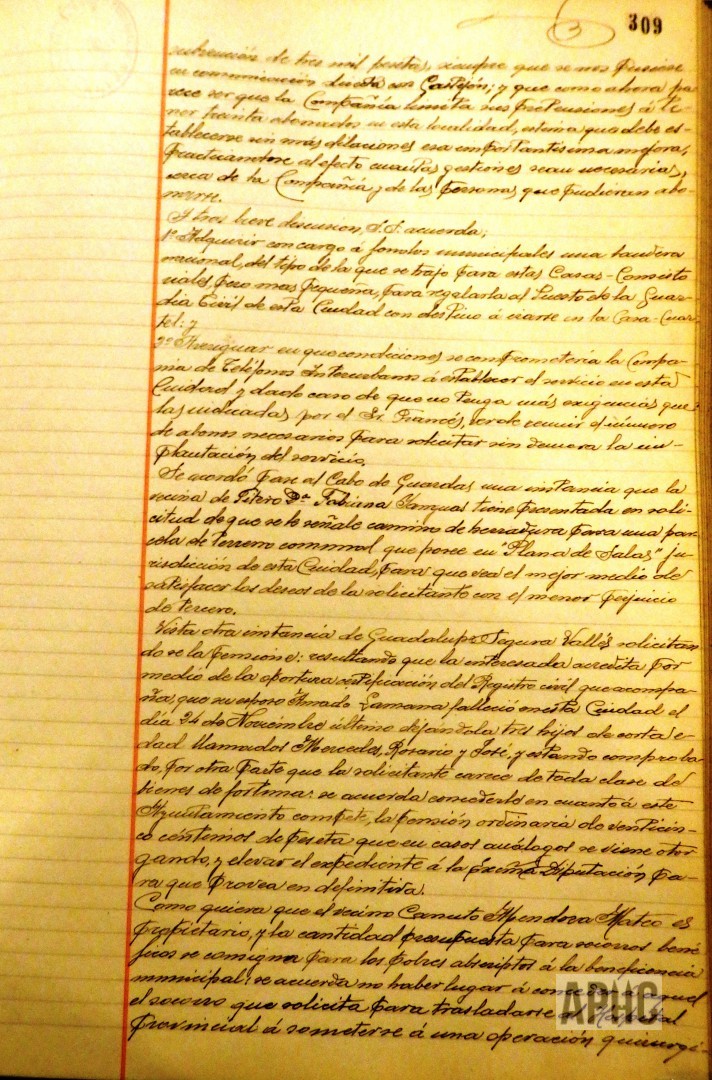 309
3
subvención de tres mil pesetas, siempre que se nos pusiese
en comunicación directa con Castejón; y que como ahora pa
rece ser que la Compañía limita sus pretensiones á te-
ner treinta abonados en esta localidad, estima que debe es-
tablecerse sin más dilaciones esa importantísima mejora,
practicandose al efecto cuantas gestiones sean necesarias,
cerca de la Compañía y de las personas que pudieran abo-
narse.
Y tras breve discusion, S.S. acuerda;
1º Adquirir con cargo á fondos municipales una bandera
nacional, del tipo de la que se trajo para estas Casas-Consisto
riales pero mas pequeña, para regalarla al Puesto de la Guar-
dia Civil de esta Ciudad con destino á izarse en la Casa-Cuar
tel: y
2º Averiguar en que condiciones se comprometería la Compa-
ñia de Teléfonos Interurbanos á establecer el servicio en esta
Ciudad y dado caso de que no tenga más exigencias que
las indicadas por el Sr. Francés, ver de reunir el número
de abonos necesarios para solicitar sin demora la im-
plantación del servicio.
Se acordó pase al Cabo de Guardas una instancia que la
vecina de Fitero Dª Fabiana Yanguas tiene presentada en soli-
citud de que se le señale camino de herradura para una par
cela de terreno comunal que posee en "Plana de Salas" ju-
risdicción de esta Ciudad, para que vea el mejor medio de
satisfacer los deseos de la solicitante con el menor perjuicio
de tercero.
Vista otra instancia de Guadalupe Segura Vallés solicitan
do se la pensione: resultando que la interesada acredita por
medio de la oportuna certificación del Registro civil que acompa-
ña, que su esposo Amado Lamana falleció en esta Ciudad el
día 24 de Noviembre último dejándola tres hijos de corta e-
dad llamados Mercedes, Rosario y José, y estando comproba
do, por otra parte que la solicitante carece de toda clase de
bienes de fortuna: se acuerda concederle en cuanto á este
Ayuntamiento compete, la pensión ordinaria de venticin-
co centimos de peseta que en casos análogos se viene otor
gando, y elevar el expediente á la Excma Diputación pa-
ra que provea en definitiva.
Como quiera que el vecino Canuto Mateo es
propietario, y la cantidad presupuesta para socorros bené
ficos se consigna para los pobres adscriptos á la beneficencia
municipal: se acuerda no haber lugar á
el socorro que solicita para trasladarse al Hospital
Provincial á someterse á una operación quirurgi-
APHC